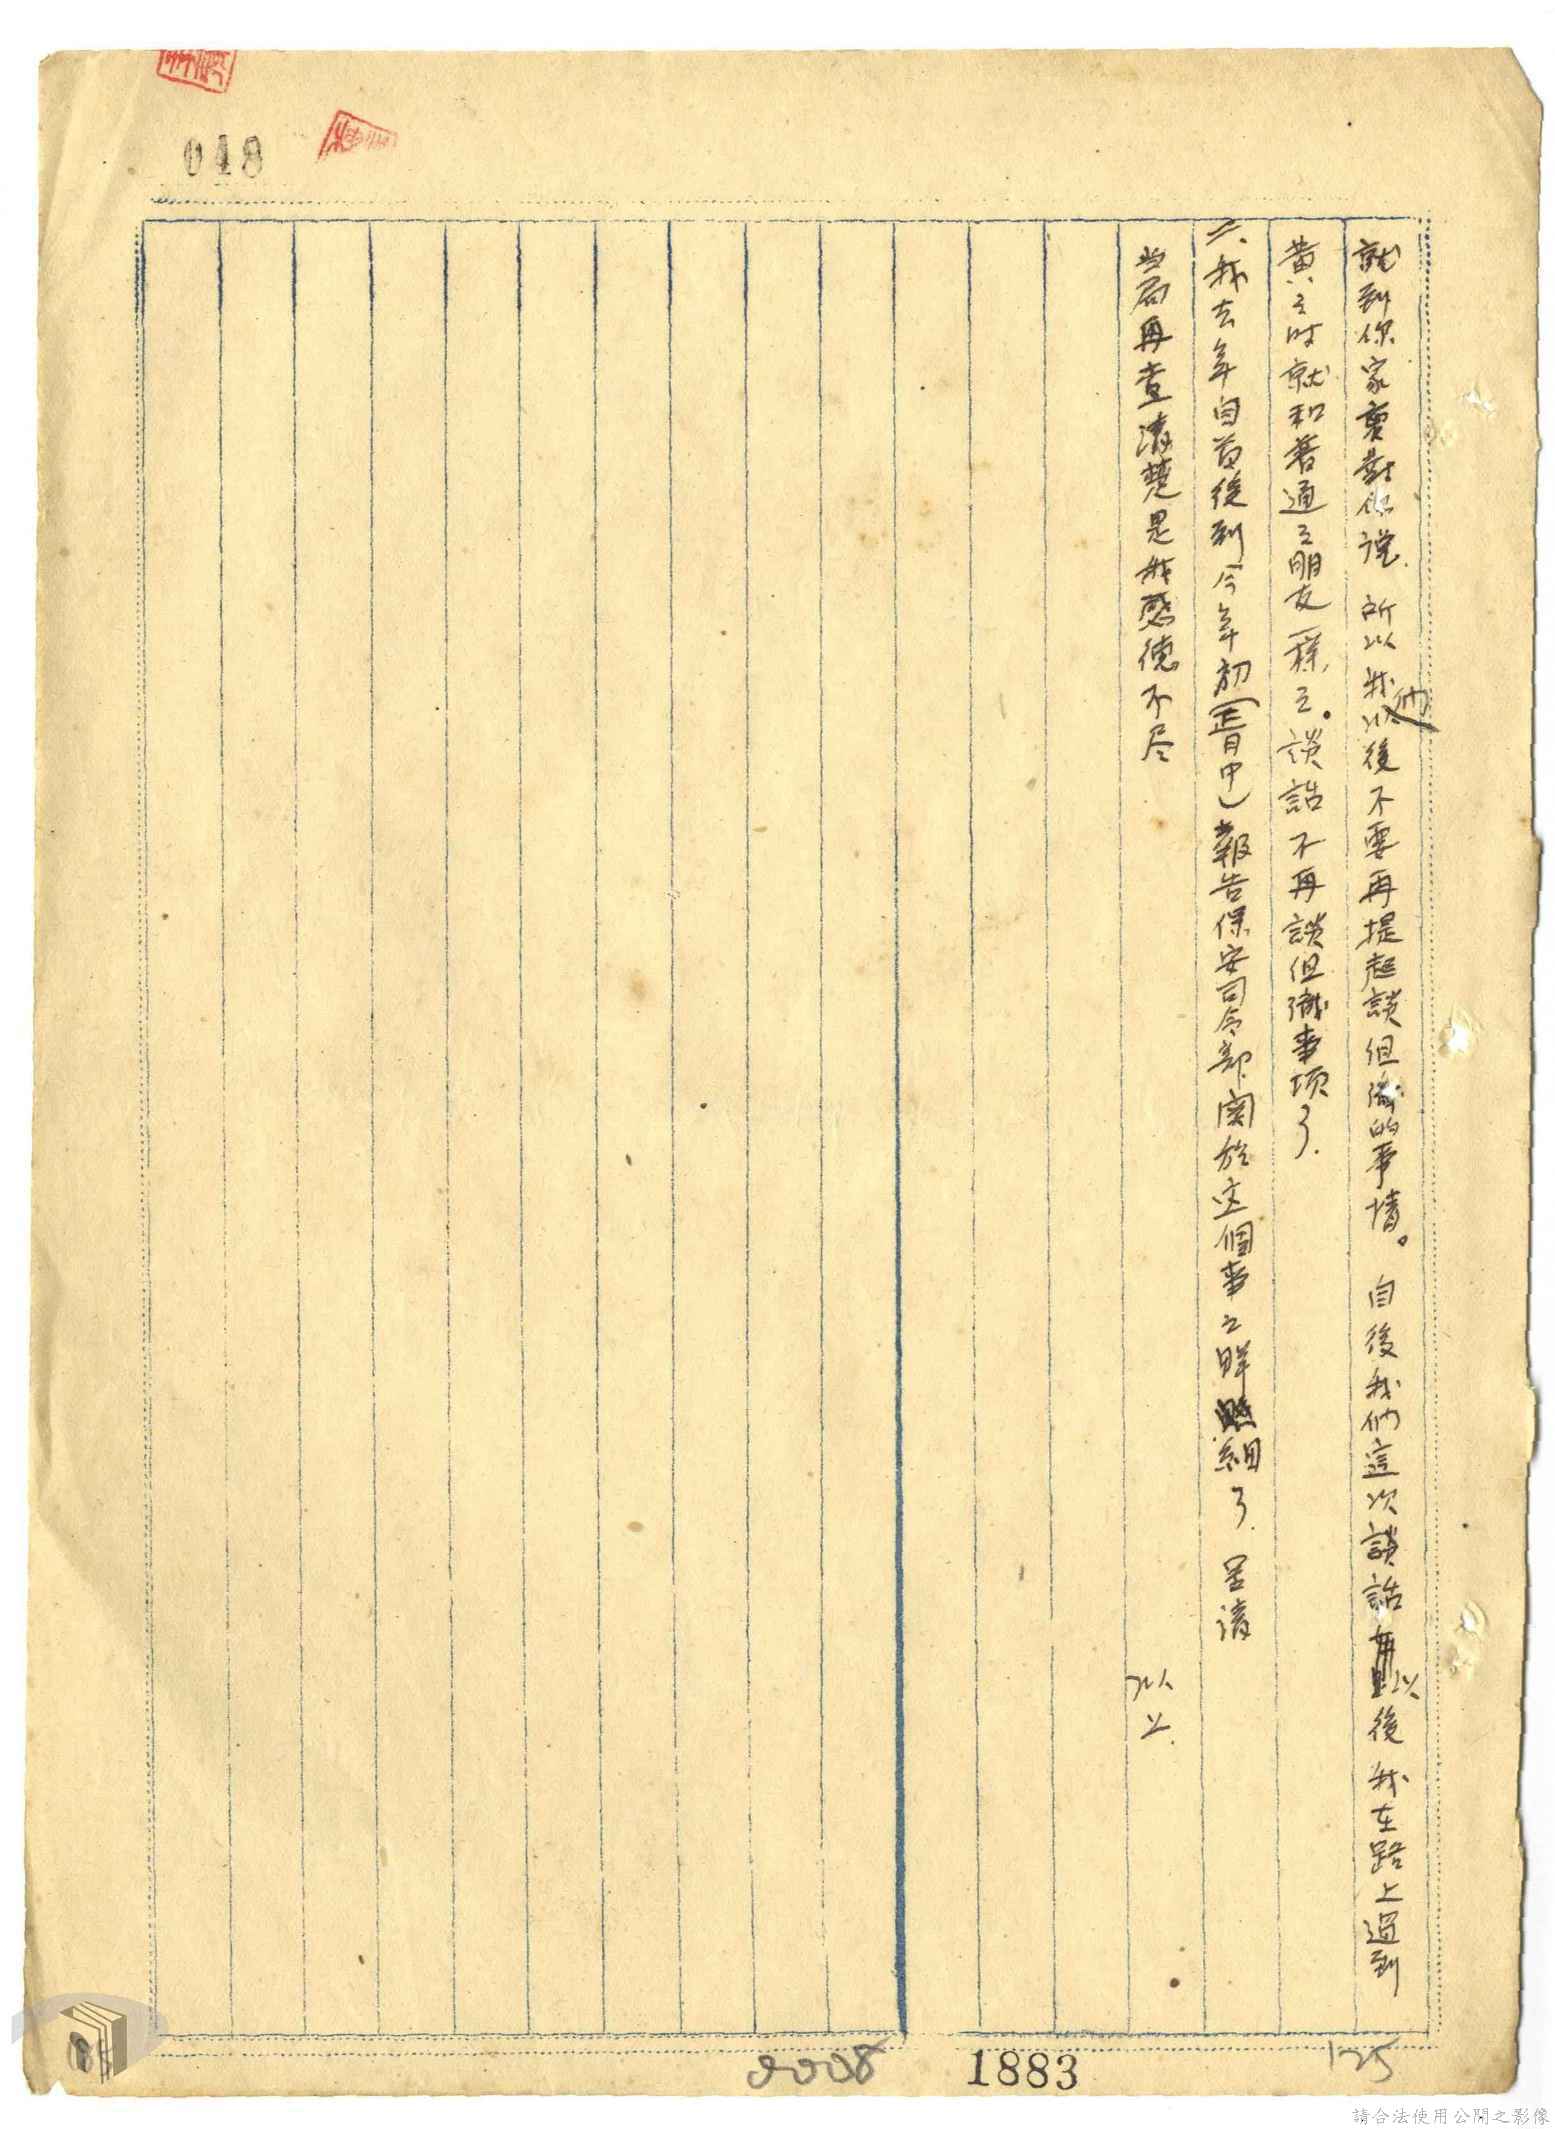 048
就到你家裏對你說. 所以我們以後不要再提起談但識的事情。自後我們這次談話以後我在路上遇到
黃之時就和普通之朋友一樣之。談話不再談但識事項了.
二、我去年自首後到今年初(正月中)報告保安司令部関於这個事之詳細了. 呈請
当局再查清楚是我感德不尽
以上.
2008
1883
125
請合法使用公開之影像